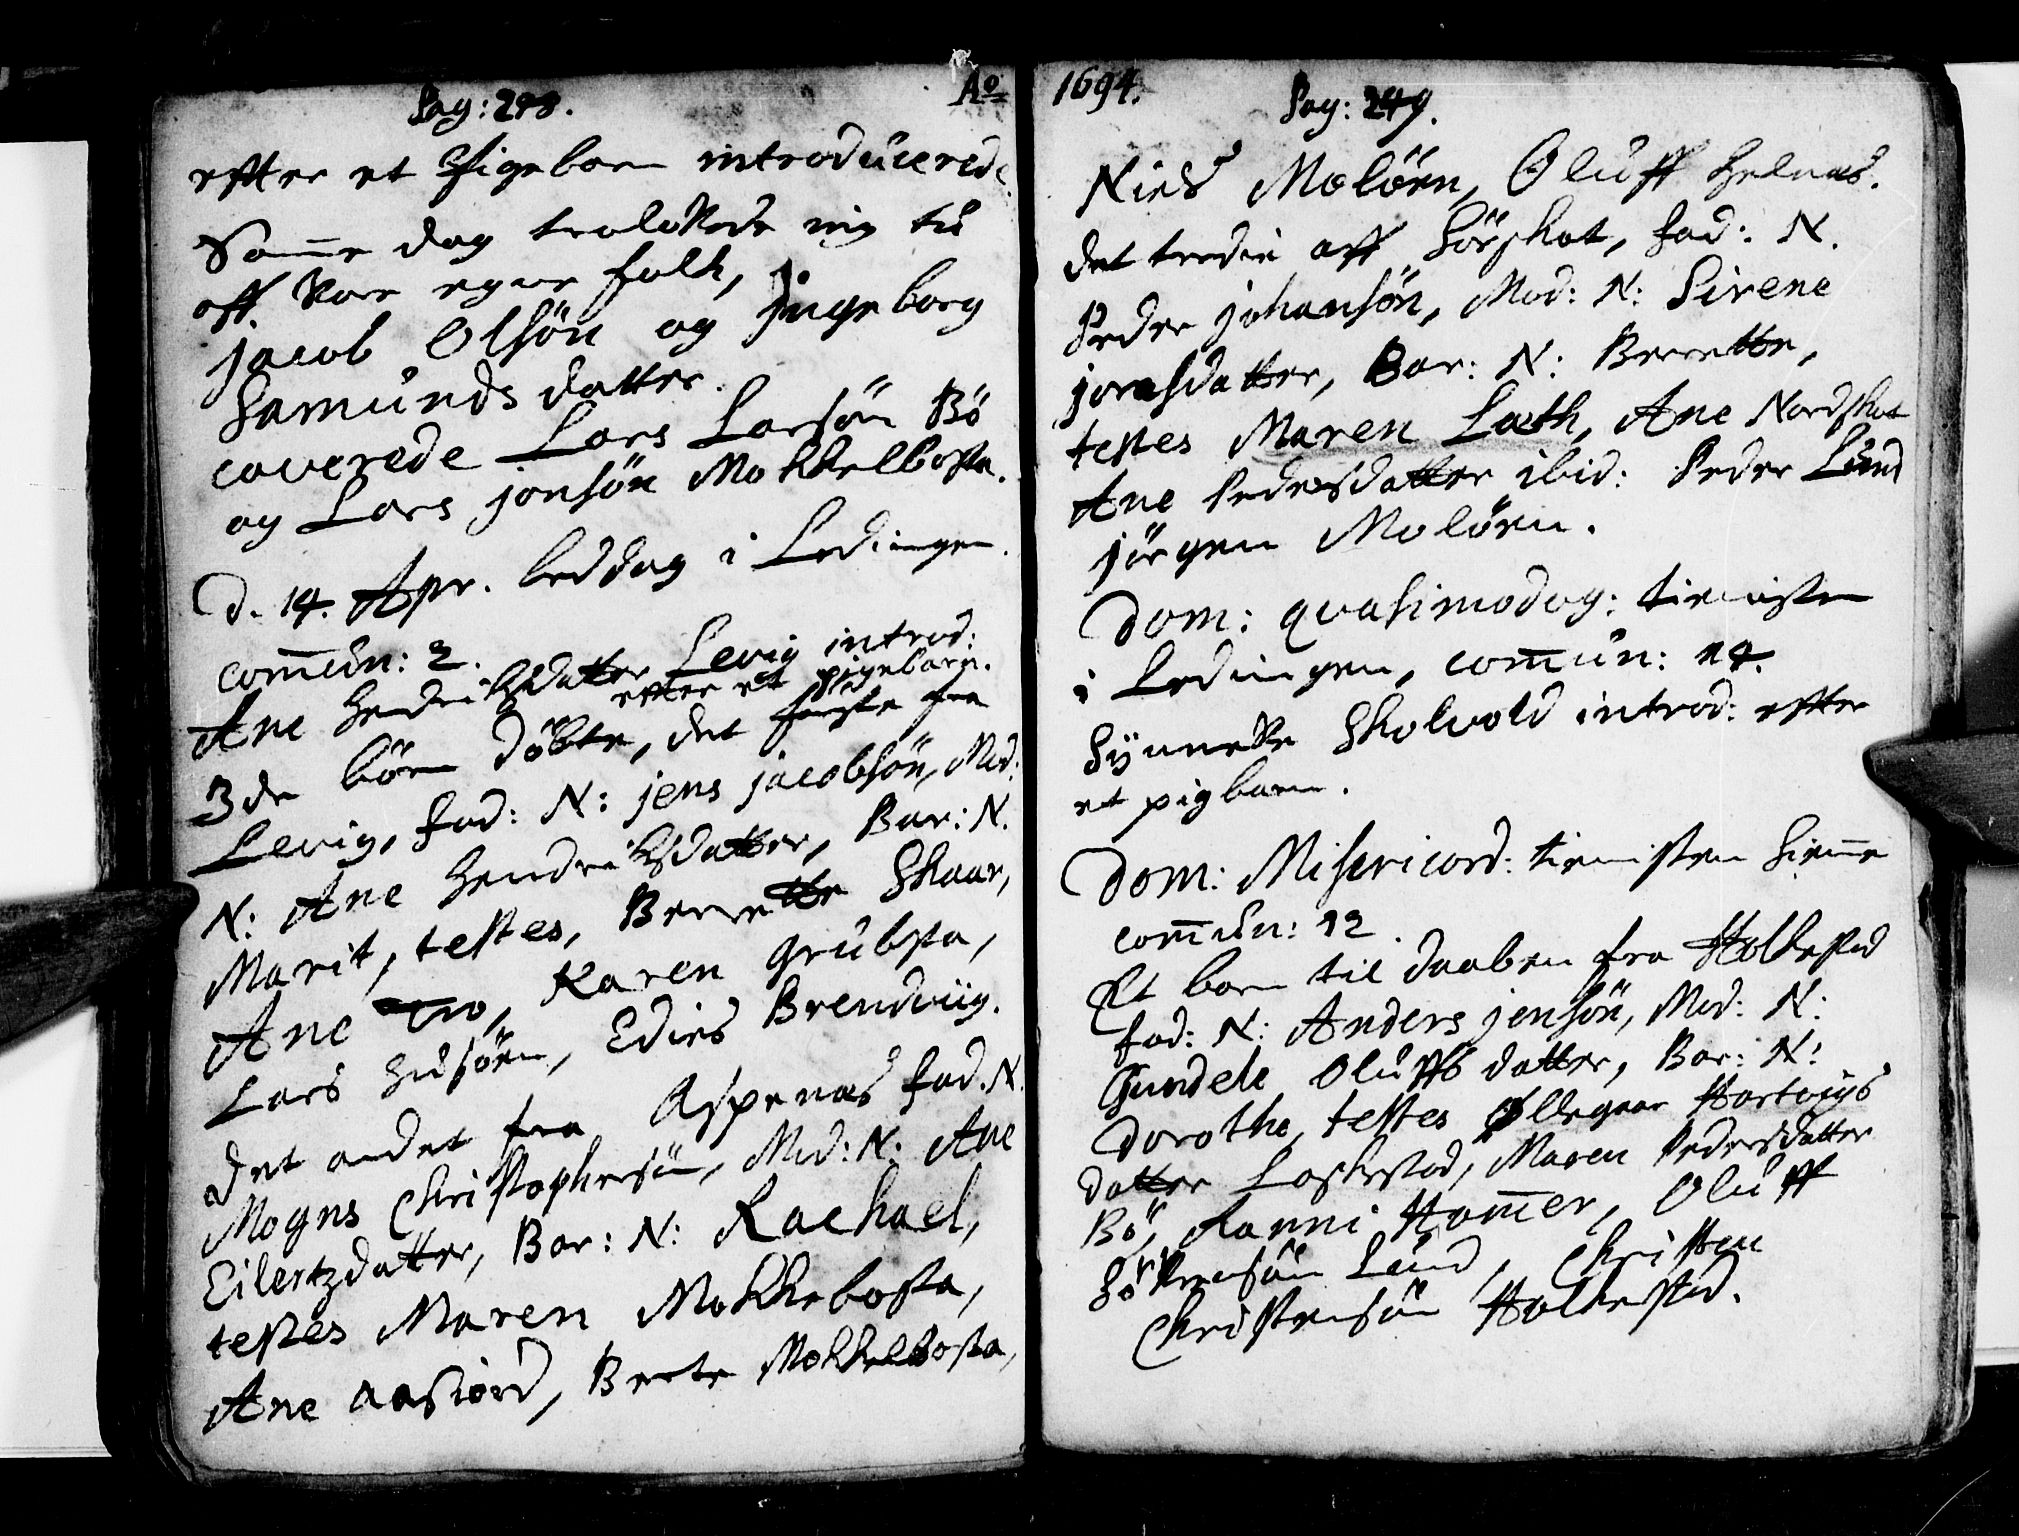 Pag: 248. Ao
efter et Pigebarn introducerede.
Same dag trolofvede sig to
aff vore egne folk,
Jacob Olsön og Ingeborg
Samunds datter.
caverede Lars Larsön Bö
og Lars Jonsön Mokkelbosta.
D. 14. Apr. beddag i Lødingen.
comun: 2.
Ane Hendrichsdatter Levig introd:
efter et pigebarn.
3de börn döbte, det förste fra
Levig, fad: N: Jens Jacobsön, Mod:
N: Ane Hendrichsdatter, Bar: N.
Marit, testes, Berrette Skaar,
Ane Tro, Karen Grubsta,
Lars Husöen, Edies Brendviig.
Det andet fra Aspenæs fad. N.
Mogns Christophersön, Mod: N: Ane
Eilertzdatter, Bar: N: Rachael,
testes Maren Mokkebosta,
Ane Aasiord, Berte Mokkelbosta,
1694. Pag: 249.
Niels Molöen, Oluff Helnæs.
det tredie aff Sörskot, fad: N.
Peder Johansön, Mod: N: Sirene
Jorasdatter, Bar: N: Berrette,
testes Maren Lath, Ane Nordskot
Ane Pedersdatter ibid: Peder Lund
Jörgen Molöen.
Dom: quasimodog: tienisten
i Lødingen, comun: 14.
Synneve Skolvold introd: efter
et pigbarn.
Dom: Misericord: tienisten hieme
comun: 12
Et barn til daaben fra Holkestad
fad: N: Anders Jensön, Mod: N:
Gundele Oluffs datter, Bar: N:
Dorothe, testes Ollegaar Hartvigs
datter Laskestad, Maren Pedersdatter
Bö, Karmi Hamer, Oluff
Sörensön Lund, Christen
Christensön Holkestad.